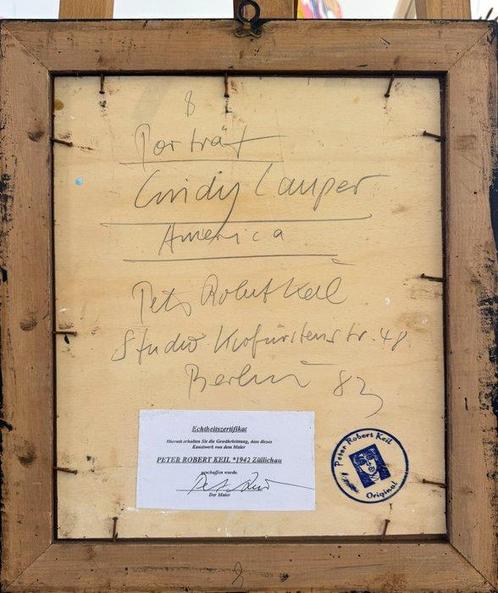 8
Porträt
Cindy Lauper
America
Peter Robert Keil
Studio Kurfürstenstr. 48
Berlin 83
Echtheitszertifikat
Hiermit erhalten Sie die Gewährleistung, dass dieses
Kunstwerk von dem Maler
PETER ROBERT KEIL *1942 Züllichau
geschaffen wurde.
Der Maler
Peter Robert Keil
Original